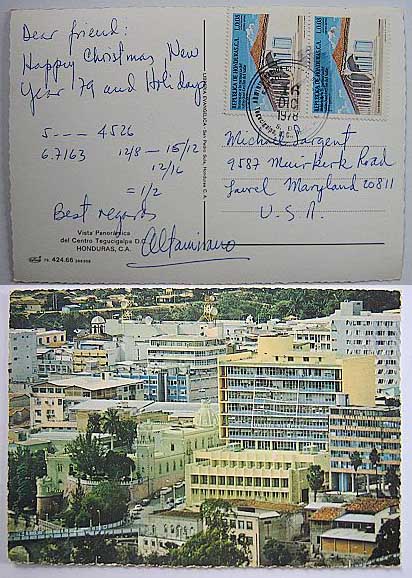 Dear friend:
Happy Christmas, New
Year 79 and Holidays
5 --- 4526
6.7163 12/8 — 15/12
12/16
= 1/2
Best regards
Altamirano
Vista Panorámica
del Centro Tegucigalpa D.C.
HONDURAS, C.A.
424.66
LIBRERIA EVANGELICA San Pedro Sula, Honduras C.A.
REPUBLICA DE HONDURAS, C.A.
DIC
1978
Michael Sargent
9587 Muirkerk Road
Laurel Maryland 20811
U.S.A.